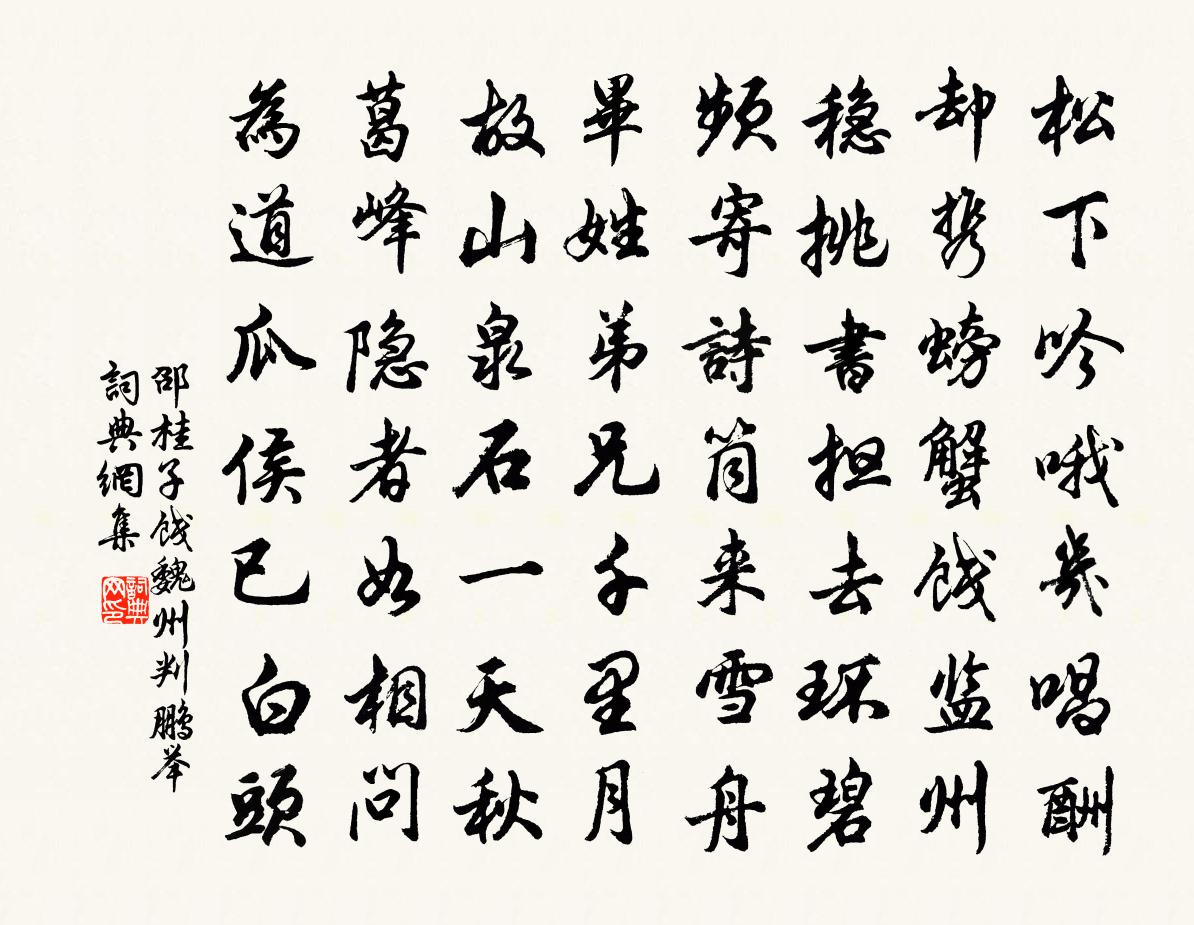 松下吟哦幾唱酬
却携螃蟹餞监州
稳挑書担去环碧
频寄詩筒来雪舟
畢姓弟兄千里月
故山泉石一天秋
葛峰隐者如相問
為道瓜侯已白頭
邵桂子餞魏州判鹏举
詞典網集
詞典网印